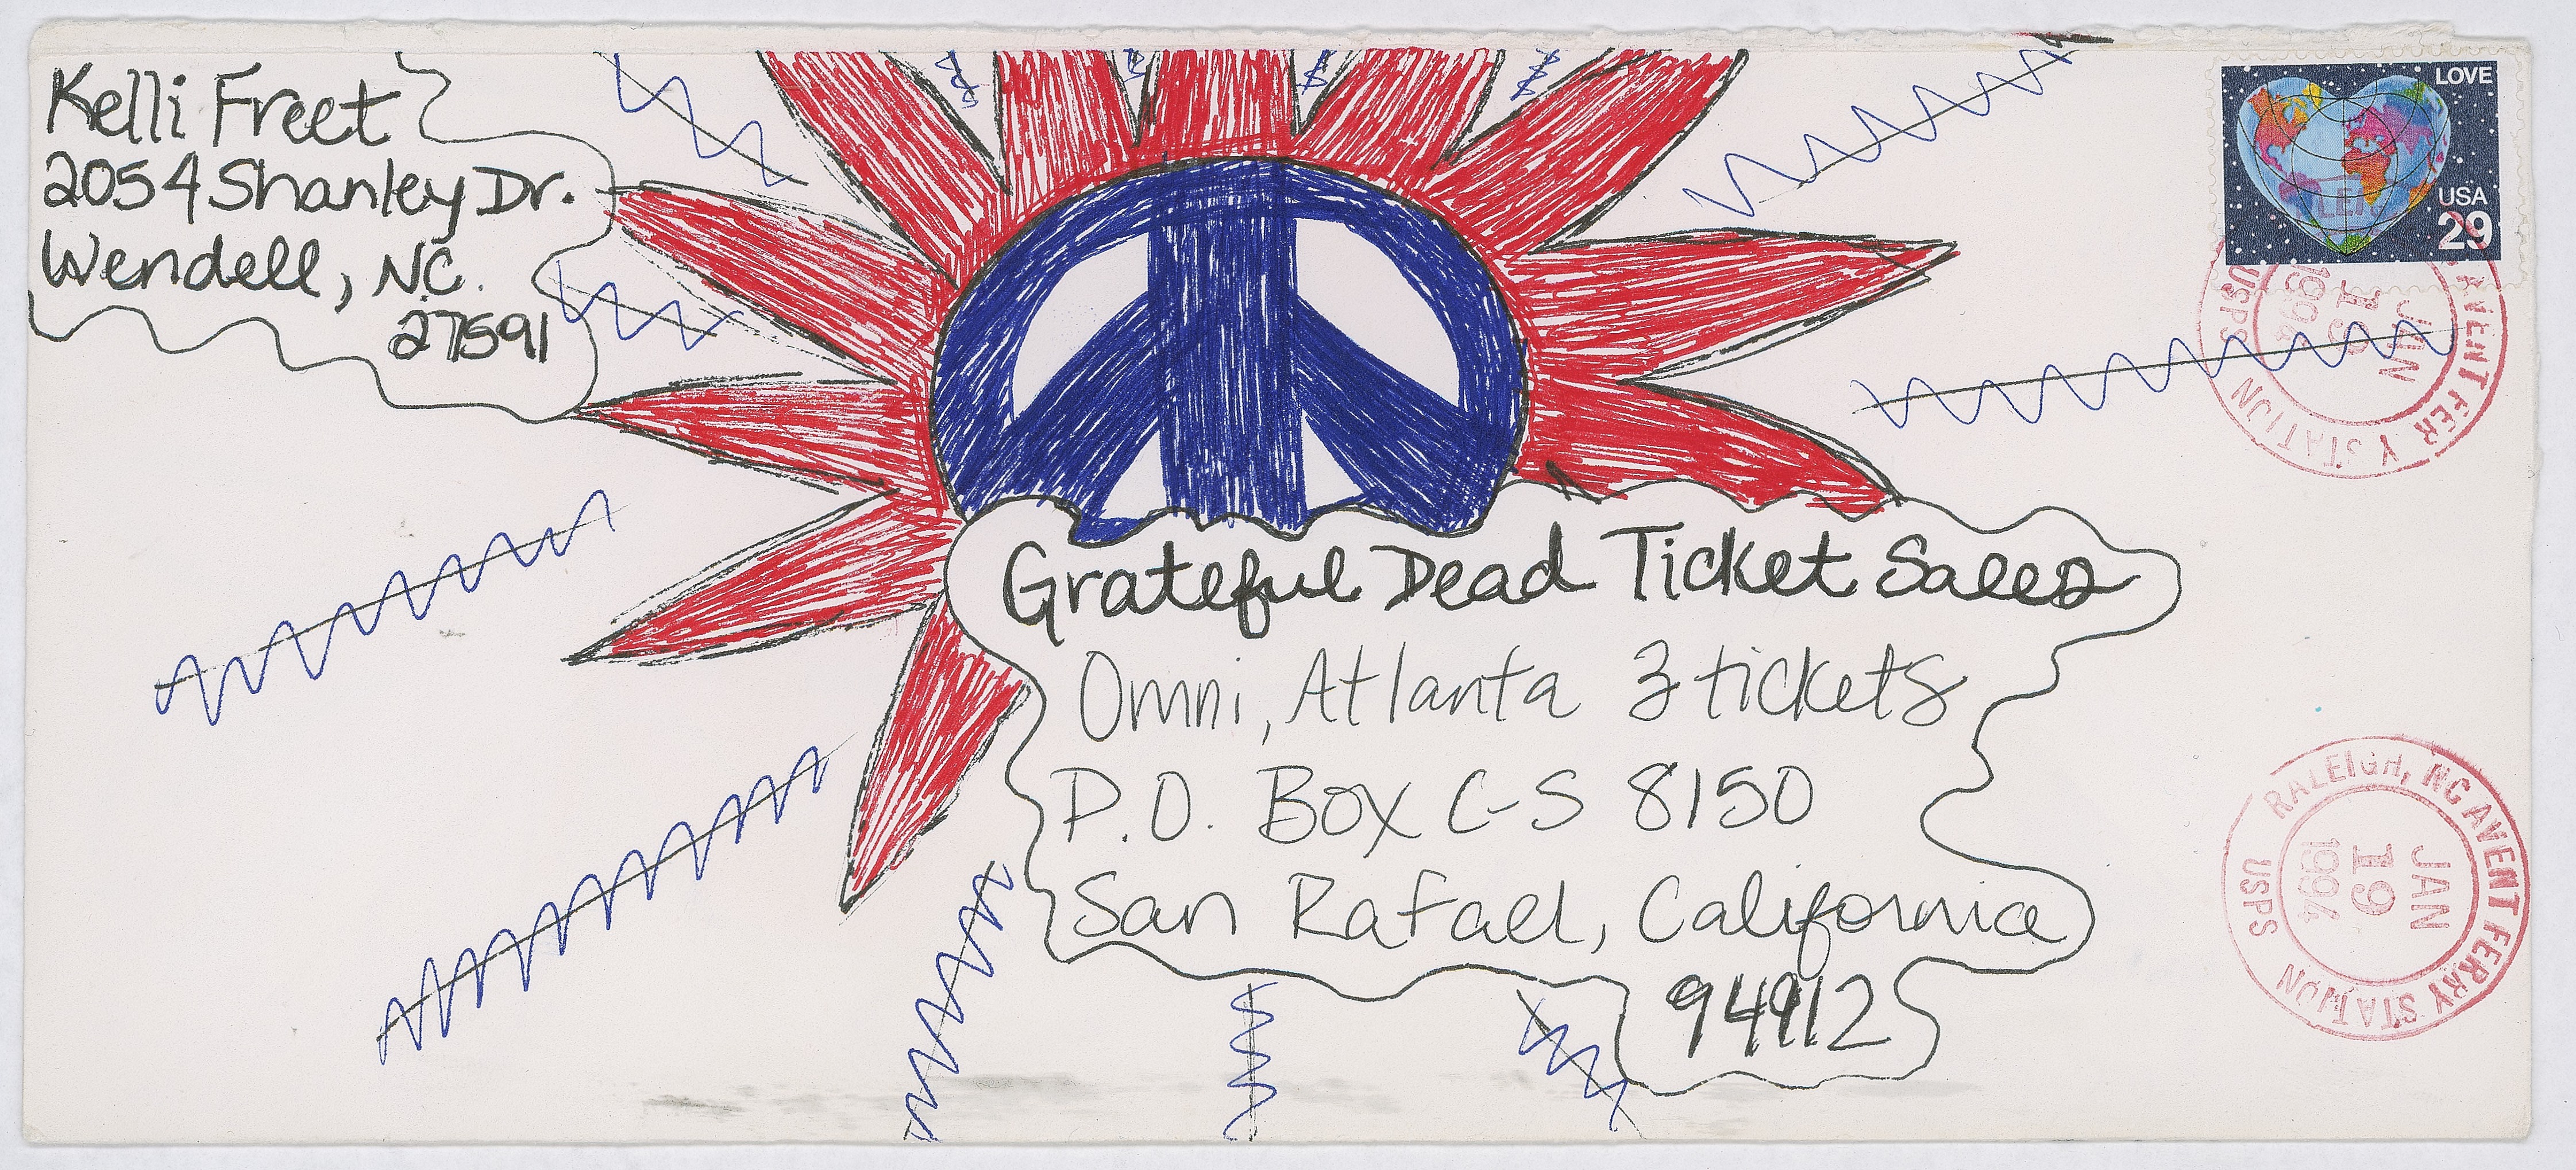 Kelli Freet
2054 Shanley Dr.
Wendell, NC.
27591
LOVE
USA
29
USPS
JAN
19
1994
AVENT FERRY STATION
Grateful Dead Ticket Sales
Omni, Atlanta 3 tickets
P.O. Box C-S 8150
San Rafael, California
94912
RALEIGH, NC AVENT FERRY STATION
JAN
19
1994
USPS